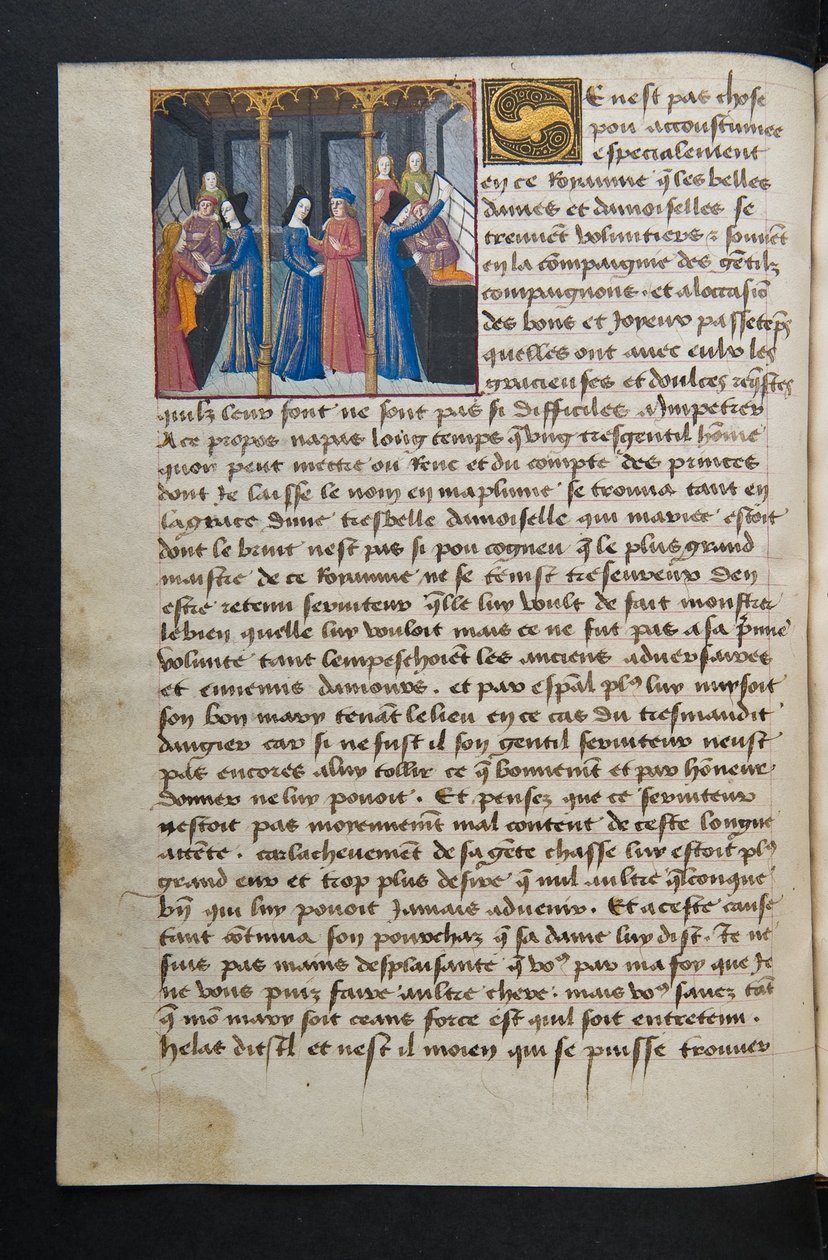 SE nest pas chose
pou accoustumee
especialement
en ce Royaume q̃ les belles
dames et damoiselles se
treuuent voluntiers ⁊ souuẽt
en la cõmpaignie des gẽtilz
compaignons. et a loccasiõ
des bons et Joyeux passetẽps
quelles ont auec eulx les
gracieuses et doulces req̃stes
quilz leur font ne sont pas si difficiles a Impetrer
A ce propos na pas long temps q̃ vng tresgentil hõme
quon peut mectre ou renc et du compte des princes
dont Je laisse le nom en ma plume se trouua tant en
la grace dune tresbelle damoiselle qui mariee estoit
dont le bruit nest pas si pou cogneu q̃ le plus grand
maistre de ce Royaume ne se tẽnist treseureux den
estre retenu seruiteur q̃lle luy voult de fait monstrer
le bien quelle luy vouloit mais ce ne fut pas a sa p̃miẽ
volunte tant lempeschoiẽt les anciens aduersaires
et ennemis damours. et par esp̃al plꝰ luy nuysoit
son bon mary tenãt le lieu en ce cas du tresmaudit
dangier car si ne fust il son gentil seruiteur neust
pas encores a luy tollir ce q̃ bonnemẽt et par hõneur
donner ne luy pouoit. Et pensez que ce seruiteur
nestoit pas moyennemẽt mal content de ceste longue
actẽte. car lacheuemẽt de sa gẽte chasse luy estoit plꝰ
grand eur et trop plus desire q̃ nul aultre q̃lconque
biẽ qui luy pouoit Jamais aduenir. Et a ceste cause
tant cõtinua son pourchaz q̃ sa dame luy dist. Je ne
suis pas mains desplaisante q̃ voꝰ par ma foy que Je
ne vous puiz faire aultre chere. mais voꝰ sauez tãt
q̃ mõ mary soit ceans force est quil soit entretenu.
helas dit Il et nest il moien qui se puisse trouuer